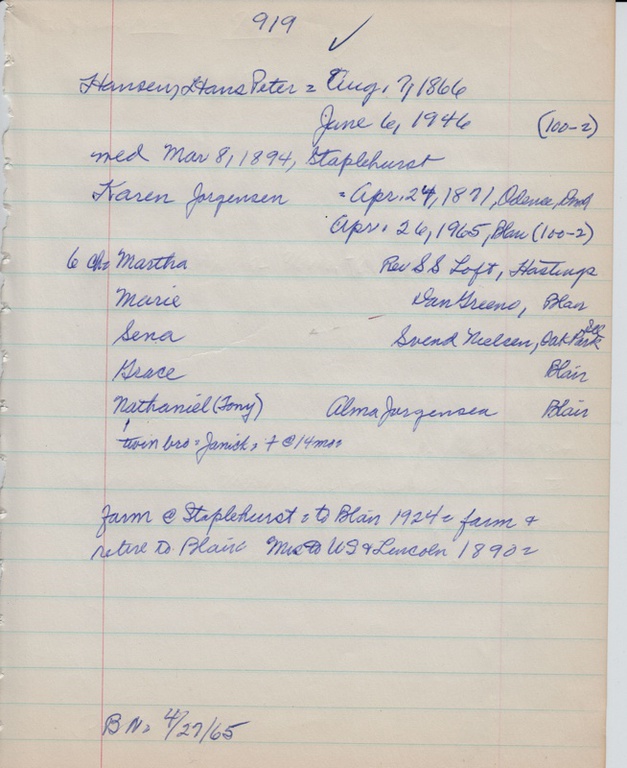 919 ✓
Hansen, Hans Peter = Aug. 7, 1866
June 6, 1946 (100-2)
med Mar 8, 1894, Staplehurst
Karen Jorgensen = Apr. 24, 1871, Odence, Dmk
Apr. 26, 1965, Blair (100-2)
6 ch: Martha Rev S S Loft, Hastings
Marie Dan Greeno, Blair
Sena Svend Nielsen, Oak Park
Grace Blair
Nathaniel (Tony) Alma Jorgensen Blair
twin bro = + @ 14 mos
farm @ Staplehurst = to Blair 1924 = farm +
retire to Blair Mrs to US & Lincoln 1890 =
BN = 4/27/65